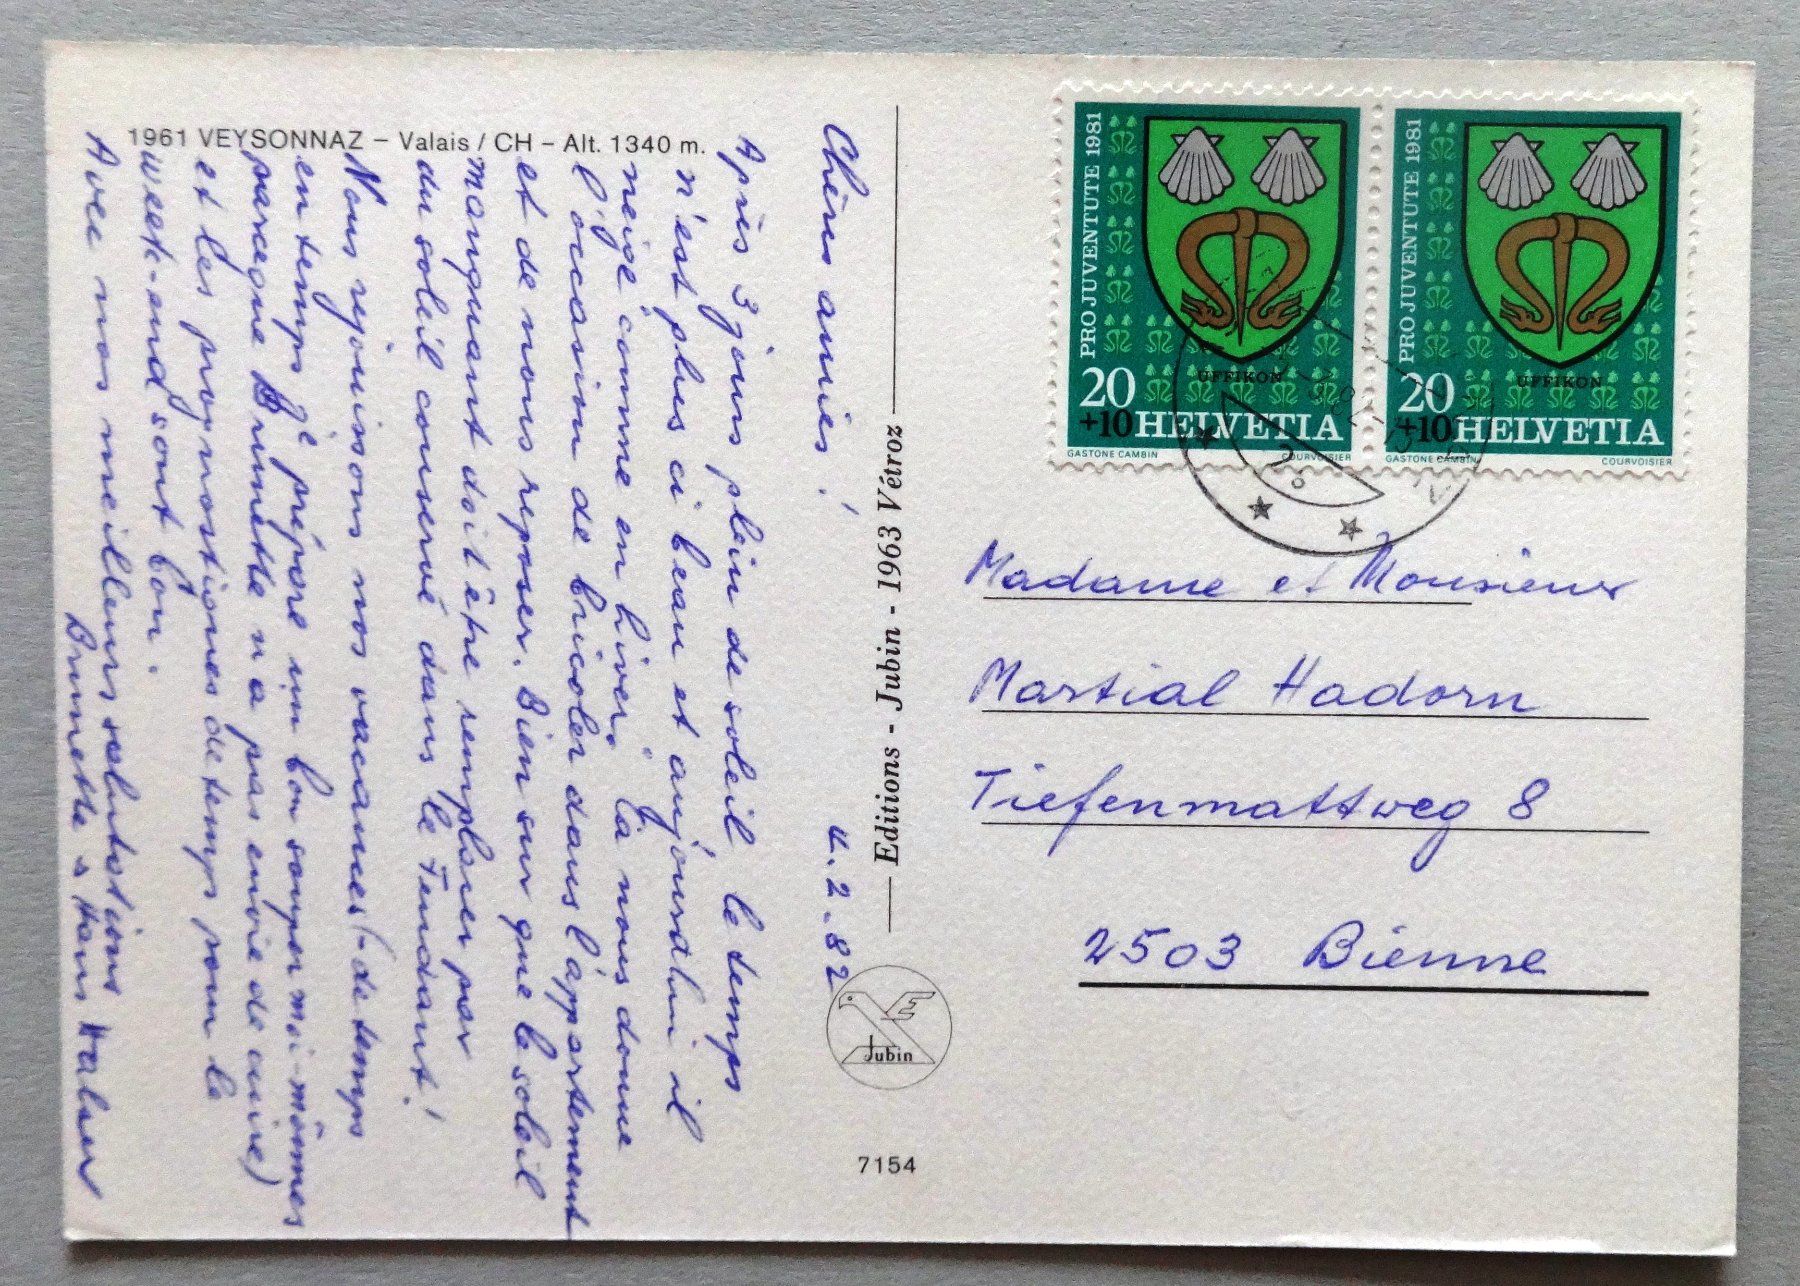 1961 VEYSONNAZ – Valais / CH – Alt. 1340 m.
Chères amies !
4.2.82
Après 3 jours plein de soleil le temps
n'est plus ci beau et aujourdhui il
neige comme en hiver. Ca nous donne
l'occasion de bricoler dans l'appartement
et de nous reposer. Bien sur que le soleil
manquant doit être remplacer par
du soleil conservé dans le Fendant!
Nous rejouissons nos vacances (-de temps
en temps je prépare un bon souper moi-mêmes
parceque Brunette n'a pas envie de cuire)
et les prognostiques de temps pour le
week-end sont bon.
Avec nos meilleurs salutations
Brunette & Hans
Editions - Jubin - 1963 Vétroz
Jubin
7154
PRO JUVENTUTE 1981
UFFIKON
20
+10 HELVETIA
GASTONE CAMBIN COURVOISIER
PRO JUVENTUTE 1981
UFFIKON
20
+10 HELVETIA
GASTONE CAMBIN COURVOISIER
Madame et Monsieur
Martial Hadorn
Tiefenmattweg 8
2503 Bienne